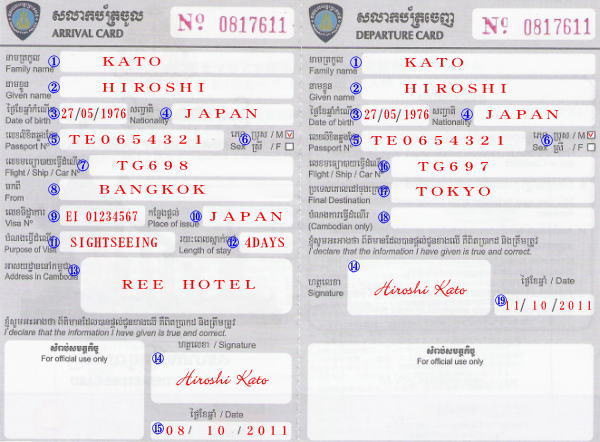 សលាកប័ត្រចូល
ARRIVAL CARD
Nº 0817611
① នាមត្រកូល
Family name
KATO
② នាមខ្លួន
Given name
HIROSHI
③ ថ្ងៃខែឆ្នាំកំណើត
Date of birth
27/05/1976
④ សញ្ជាតិ
Nationality
JAPAN
⑤ លេខលិខិតឆ្លងដែន
Passport Nº
TE0654321
⑥ ភេទ ប្រុស / M
Sex ស្រី / F
⑦ លេខមធ្យោបាយធ្វើដំណើរ
Flight / Ship / Car Nº
TG698
⑧ មកពី
From
BANGKOK
⑨ លេខទិដ្ឋាការ
Visa Nº
EI 01234567
⑩ កន្លែងផ្តល់
Place of issue
JAPAN
⑪ បំណងធ្វើដំណើរ
Purpose of Visit
SIGHTSEEING
⑫ រយៈពេលស្នាក់នៅ
Length of stay
4DAYS
⑬ អាសយដ្ឋាននៅកម្ពុជា
Address in Cambodia
REE HOTEL
ខ្ញុំសូមអះអាងថា ព័ត៌មានដែលបានផ្តល់ជូនខាងលើ គឺពិតប្រាកដ និងត្រឹមត្រូវ
I declare that the information I have given is true and correct.
សំរាប់សមត្ថកិច្ច
For official use only
⑭ ហត្ថលេខា / Signature
Hiroshi Kato
ថ្ងៃខែឆ្នាំ / Date
⑮ 08/ 10 /2011
សលាកប័ត្រចេញ
DEPARTURE CARD
Nº 0817611
① នាមត្រកូល
Family name
KATO
② នាមខ្លួន
Given name
HIROSHI
③ ថ្ងៃខែឆ្នាំកំណើត
Date of birth
27/05/1976
④ សញ្ជាតិ
Nationality
JAPAN
⑤ លេខលិខិតឆ្លងដែន
Passport Nº
TE0654321
⑥ ភេទ ប្រុស / M
Sex ស្រី / F
⑯ លេខមធ្យោបាយធ្វើដំណើរ
Flight / Ship / Car Nº
TG697
⑰ ប្រទេសគោលដៅចុងក្រោយ
Final Destination
TOKYO
⑱ បំណងការធ្វើដំណើរ
(Cambodian only)
ខ្ញុំសូមអះអាងថា ព័ត៌មានដែលបានផ្តល់ជូនខាងលើ គឺពិតប្រាកដ និងត្រឹមត្រូវ
I declare that the information I have given is true and correct.
⑭ ហត្ថលេខា
Signature
Hiroshi Kato
ថ្ងៃខែឆ្នាំ / Date
⑲ 11/ 10 /2011
សំរាប់សមត្ថកិច្ច
For official use only